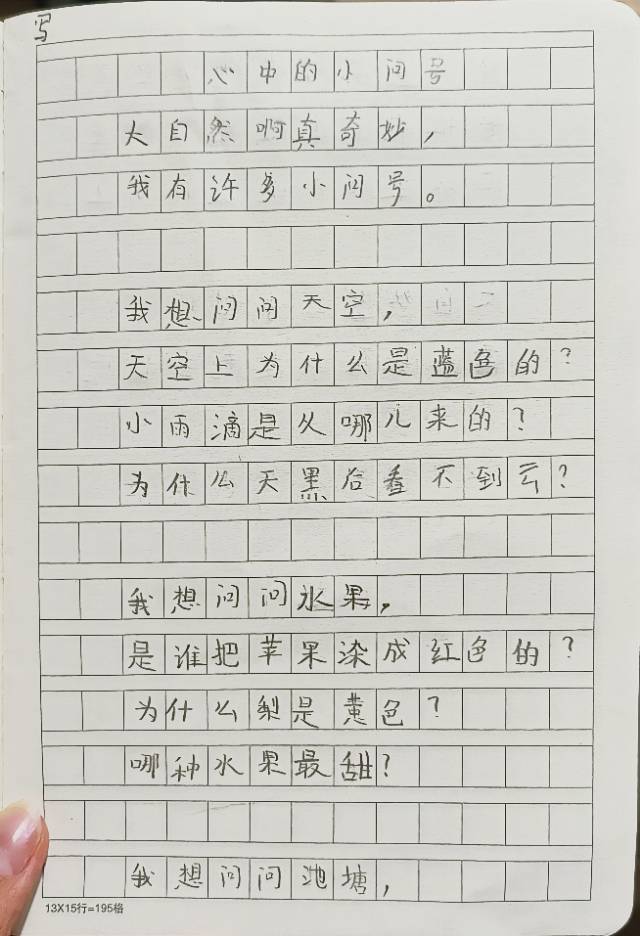 写
心中的小问号
大自然啊真奇妙，
我有许多小问号。
我想问问天空，
天空上为什么是蓝色的？
小雨滴是从哪儿来的？
为什么天黑后看不到云？
我想问问水果，
是谁把苹果染成红色的？
为什么梨是黄色？
哪种水果最甜？
我想问问池塘，
13X15行=195格